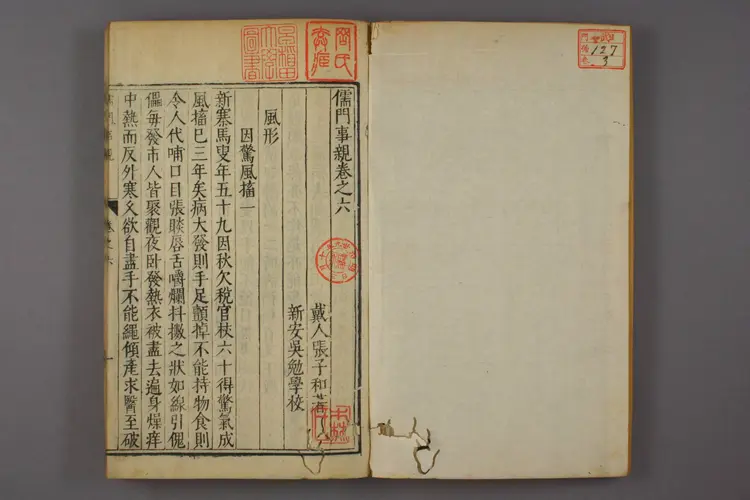 儒門事親卷之六
戴人張子和著
新安吳勉學校
風形
因驚風搐一
新寨馬叟年五十九因秋欠稅官杖六十得驚氣成
風搐已三年矣病大發則手足顫掉不能持物食則
令人代哺口目張睒唇舌嚼爛抖擻之狀如線引傀
儡每發市人皆聚觀夜卧發熱衣被盡去遍身燥痒
中熱而反外寒久欲自盡手不能繩傾產求醫至破
卷之六
圖書
127
3